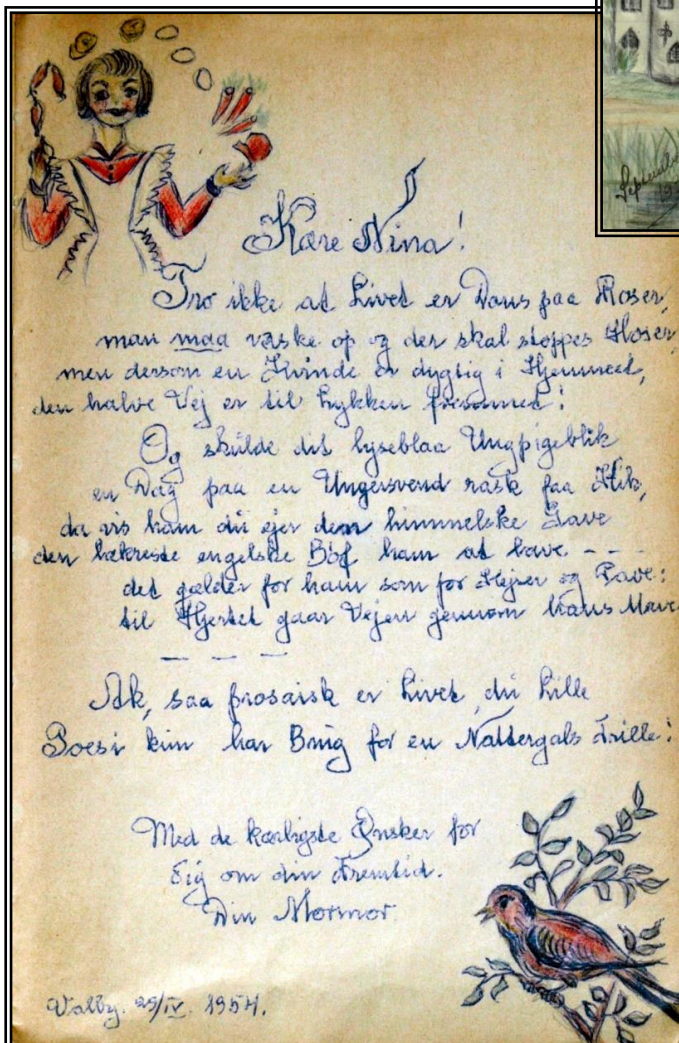 Kære Nina!
Tro ikke at Livet er Dans paa Roser,
man maa vaske op og der skal stoppes Hoser,
men dersom en Kvinde er dygtig i Hjemmet,
den halve Vej er til Lykken fremmet!
Og skulde dit lyseblaa Ungpigeblik
en Dag paa en Ungersvend rask faa Klik,
da vis ham du ejer den himmelske Gave
den lækreste engelske Böf ham at lave. - - -
det gælder for ham som for Kejser og Pave:
til Hjertet gaar Vejen gennem hans Mave
- - -
Ak, saa prosaisk er Livet, du Lille
Poesi kun har Brug for en Nattergals Trille!
Med de kærligste Ønsker for
Dig om din Fremtid.
Din Mormor
Valby. 29/IV. 1954.
September